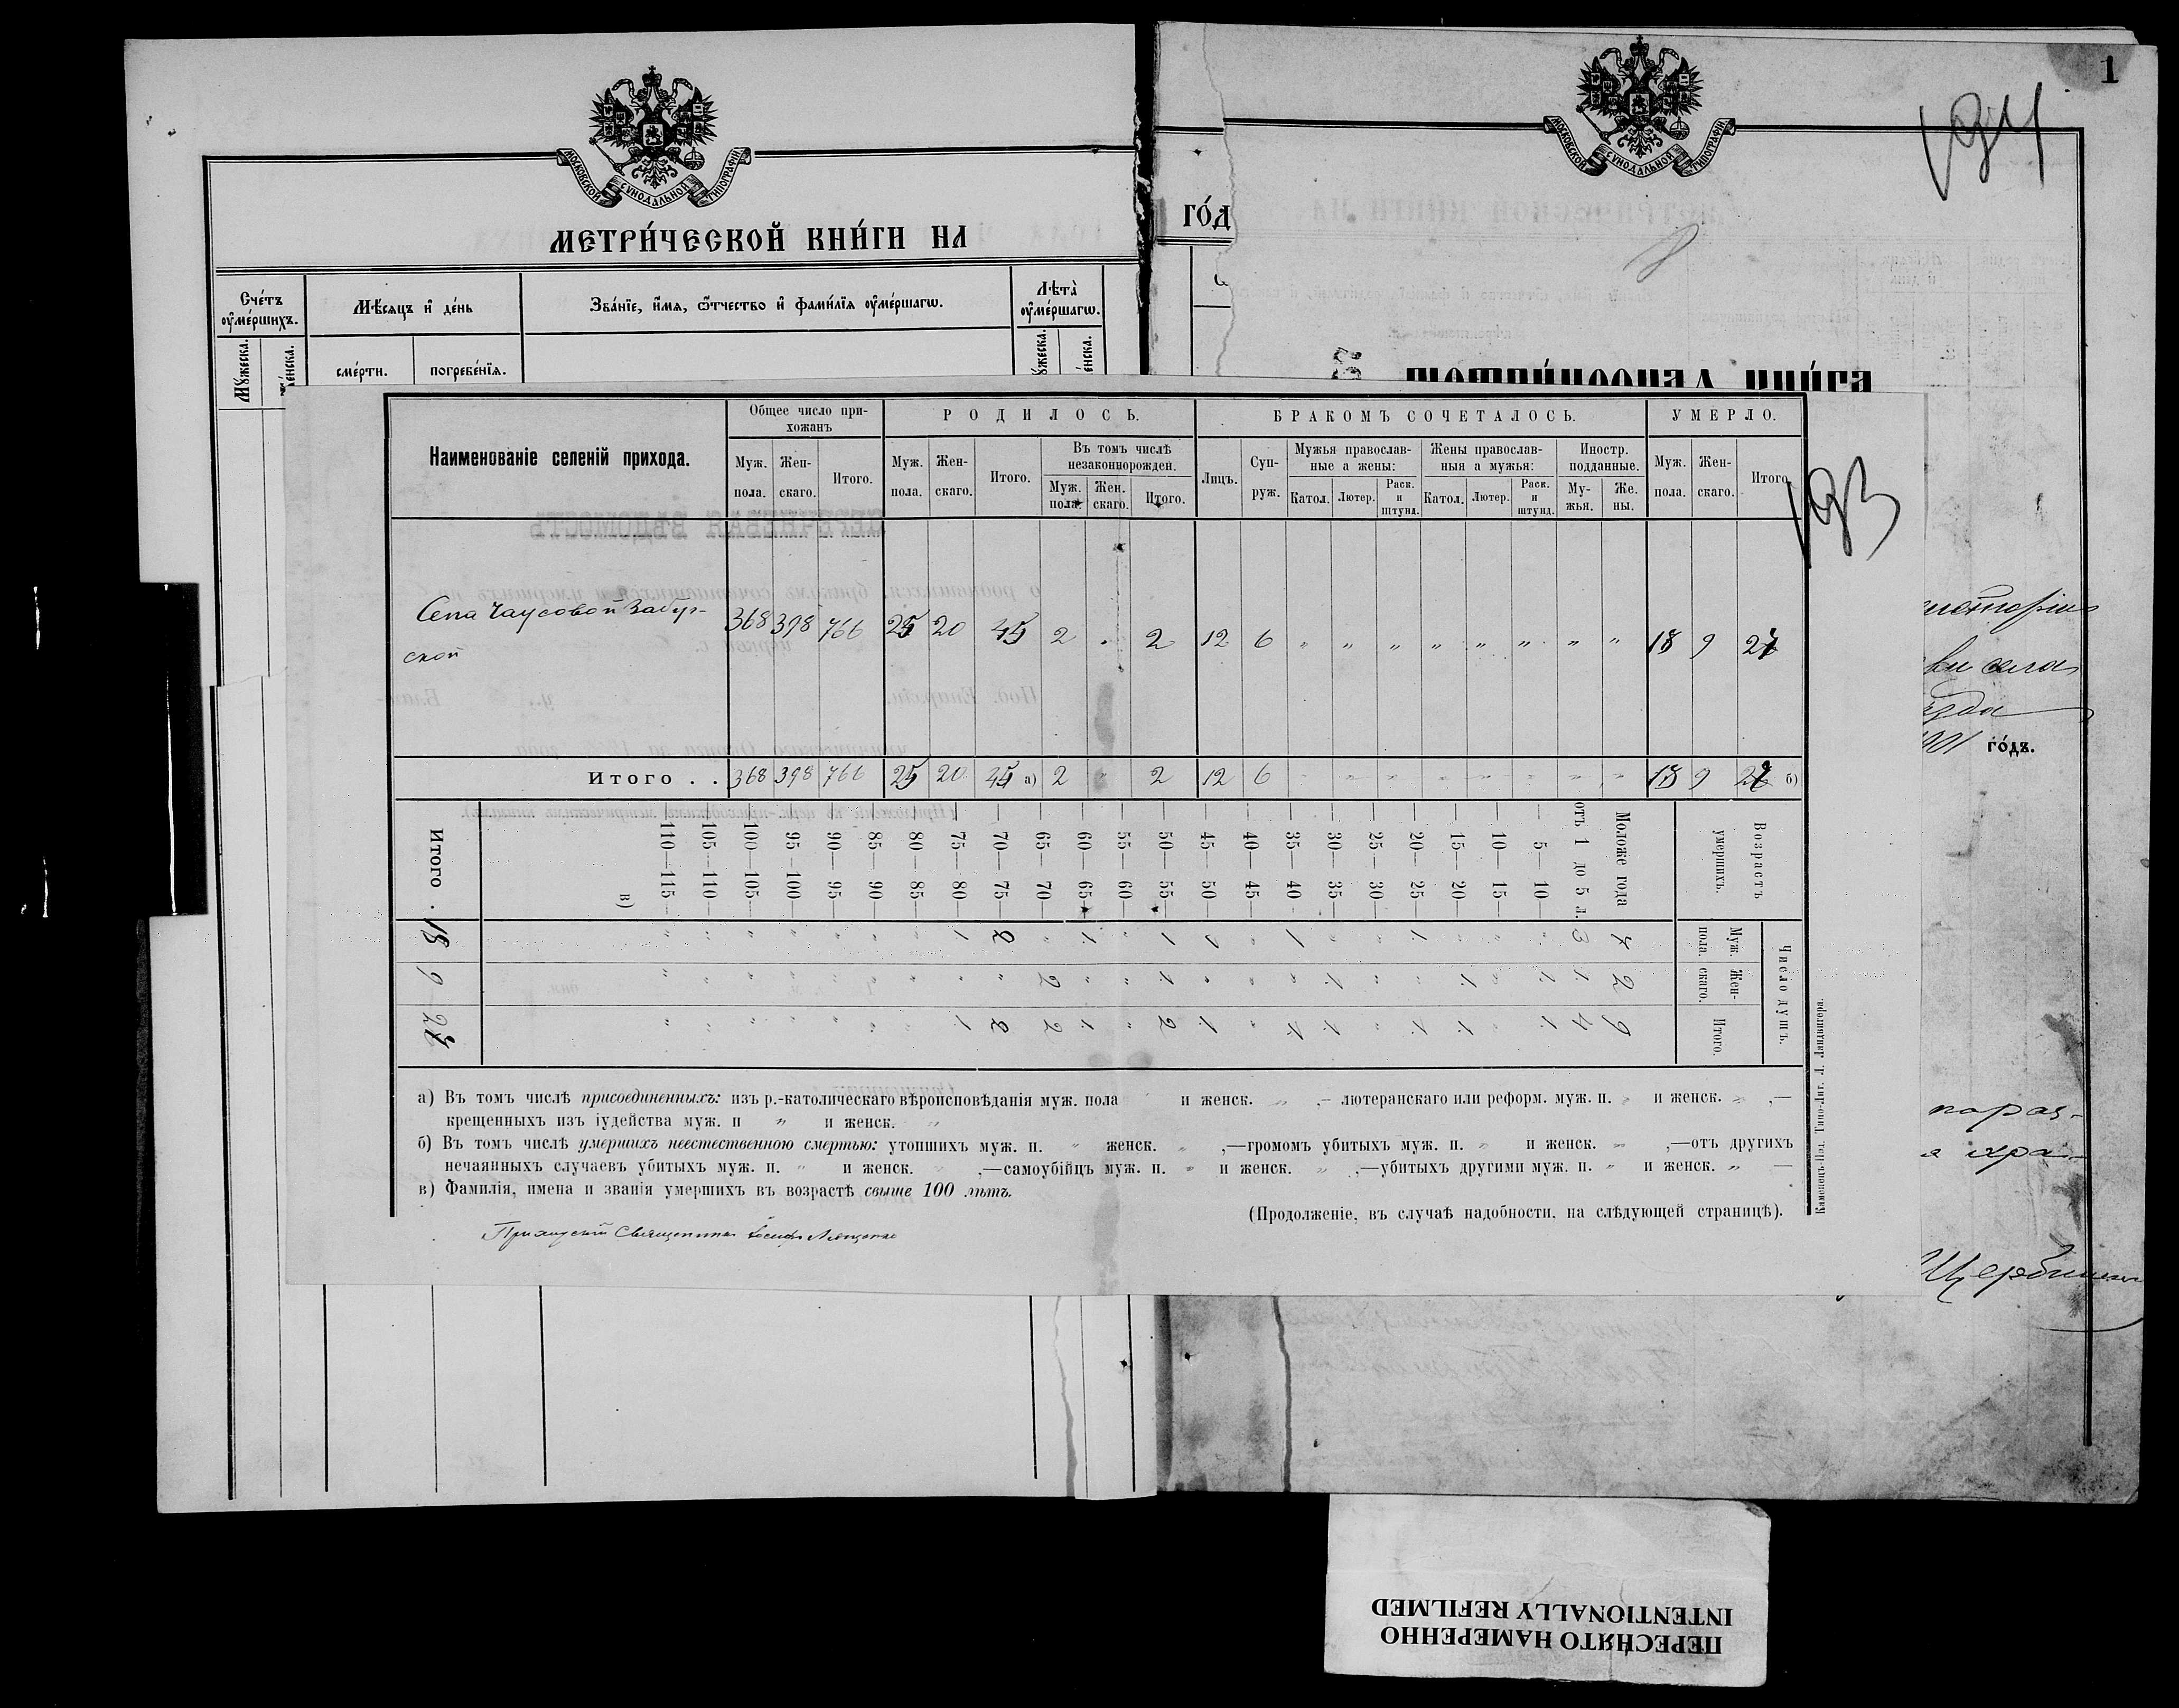 1
МОСКОВСКОЙ СѴНОДАЛЬНОЙ ТИПОГРАФІИ
МОСКОВСКОЙ СѴНОДАЛЬНОЙ ТИПОГРАФІИ
МЕТРИ́ЧЕСКОЙ КНИ́ГИ НА
ГО́Д
Сче́тъ оу҆ме́ршихъ.
Мѣ́сяцъ и҆ де́нь
Зва́нїе, и҆́мя, ѻ҆́тчество и҆ фами́лїя оу҆ме́ршагѡ.
Лѣ́та оу҆ме́ршагѡ.
Мꙋжеска.
сме́рти.
погребе́нїя.
193
Наименованіе селеній прихода.
Общее число прихожанъ
РОДИЛОСЬ.
БРАКОМЪ СОЧЕТАЛОСЬ.
УМЕРЛО.
Муж. пола. Жен-скаго. Итого.
Муж. пола. Жен-скаго. Итого.
Въ томъ числѣ незаконнорожден.
Муж. пола. Жен. скаго. Итого.
Лицъ. Суп-руж.
Мужья православ-ные а жены:
Катол. Лютер. Раск. и штунд.
Жены православ-ныя а мужья:
Катол. Лютер. Раск. и штунд.
Иностр. подданные.
Му-жья. Же. ны.
Муж. пола. Жен-скаго. Итого
Села Чаусовой Забуг-
ской
368 398 766 25 20 45 2 „ 2 12 6 „ „ „ „ „ „ „ „ 18 9 27
Итого . . 368 398 766 25 20 45 а) 2 „ 2 12 6 „ „ „ „ „ „ „ „ 18 9 27 б)
Возрастъ умершихъ.
Число душъ.
Муж. пола. Жен-скаго. Итого.
Моложе года 7 2 9
отъ 1 до 5 л. 3 1 4
— 5—10— „ 1 1
— 10—15—
— 15—20— „ 1 1
— 20—25— 1 „ 1
— 25—30—
— 30—35— „ 1 1
— 35—40 1 „ 1
— 40—45
— 45—50— 1 „ 1
— 50—55— 1 1 2
— 55—60—
— 60—65— 1 „ 1
— 65—70— „ 2 2
— 70—75— 2 „ 2
— 75—80— 1 „ 1
— 80—85—
— 85—90—
— 90—95—
— 95—100—
— 100—105—
— 105—110—
— 110—115—
в)
Итого . 18 9 27
а) Въ томъ числѣ присоединенныхъ: изъ р.-католическаго вѣроисповѣданія муж. пола „ и женск. „ ,— лютеранскаго или реформ. муж. п. „ и женск. „ ,—
крещенныхъ изъ іудейства муж. п „ и женск. „
б) Въ томъ числѣ умершихъ неестественною смертью: утопшихъ муж. п. „ женск. „ ,—громомъ убитыхъ муж. п. „ и женск. „ ,—отъ другихъ
нечаянныхъ случаевъ убитыхъ муж. п. „ и женск. „ ,—самоубійцъ муж. п. „ и женск. „ ,—убитыхъ другими муж. п. „ и женск. „ —
в) Фамилія, имена и званія умершихъ въ возрастѣ свыше 100 лѣтъ.
(Продолженіе, въ случаѣ надобности, на слѣдующей страницѣ).
Каменецъ-Под. Типо-Лит. Л. Ландвигера.
Приходскій Священникъ Іосифъ
села
1901 го́дъ.
ПЕРЕСНЯТО НАМЕРЕННО
INTENTIONALLY REFILMED